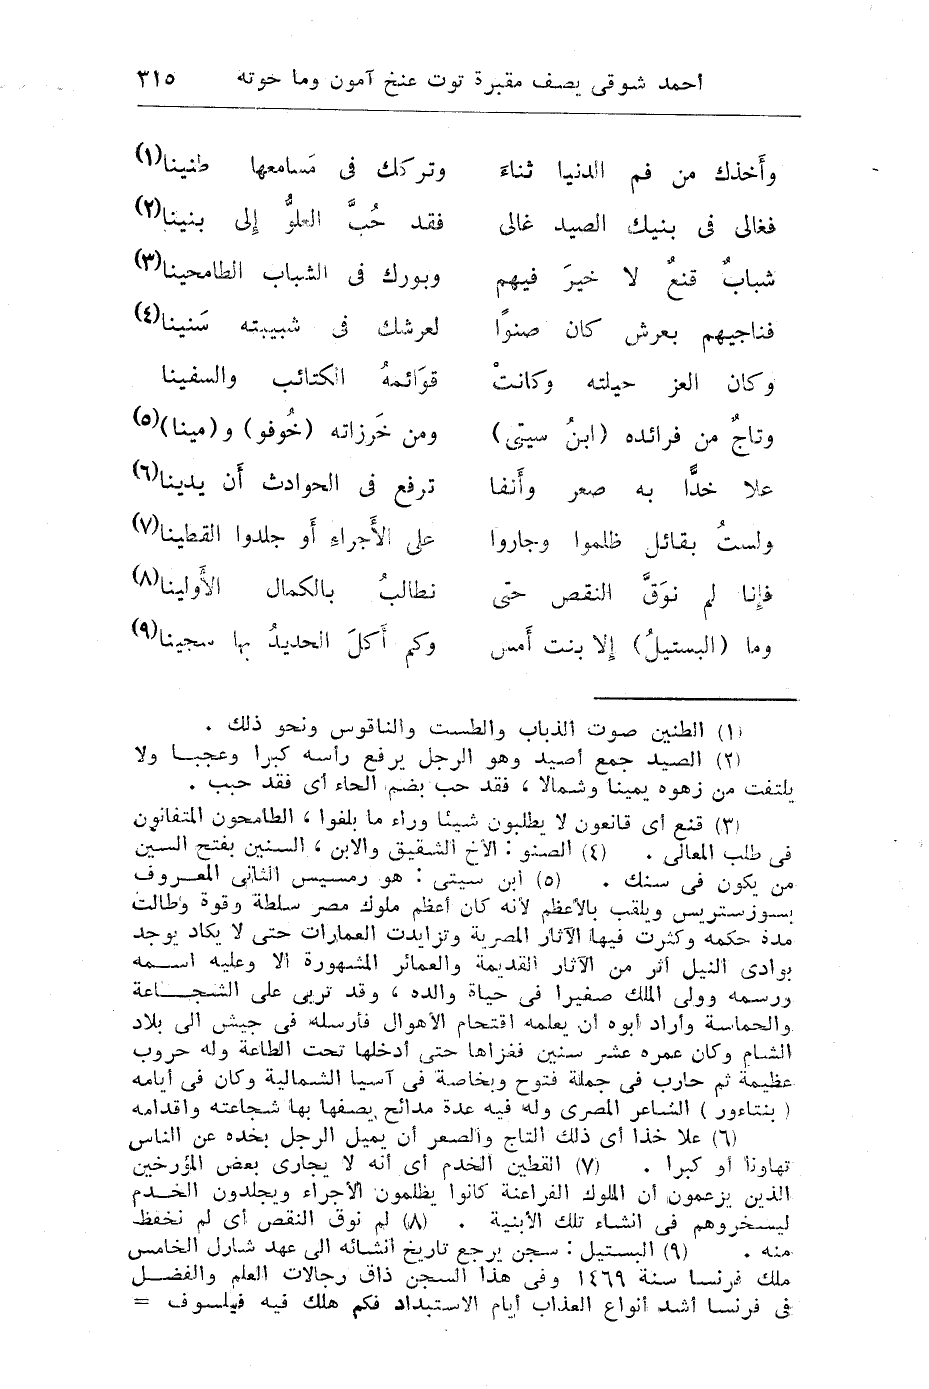 أحمد شوقى يصف مقبرة توت عنخ آمون وما حوته ٣١٥
وأَخذك من فم الدنيا ثناءً وتركك فى مَسامعها طنينا(١)
فغالى فى بنيك الصيد غالى فقد حُبَّ العلوُّ إلى بنينا(٢)
شبابٌ قنعٌ لا خيرَ فيهم وبورك فى الشباب الطامحينا(٣)
فناجيهم بعرش كان صنوًا لعرشك فى شبيبته سَنينا(٤)
وكان العز حيلته وكانتْ قوَائمهُ الكتائب والسفينا
وتاجٌ من فرائده (ابنُ سيتى) ومن خَرزاته (خُوفو) و(مينا)(٥)
علا خدًّا به صعر وأَنفا ترفع فى الحوادث أَن يدينا(٦)
ولستُ بقائل ظلموا وجاروا على الأَجراء أَو جلدوا القطينا(٧)
فإنا لم نوَقَّ النقص حتى نطالبُ بالكمال الأَولينا(٨)
وما (البستيلُ) إلا بنت أَمس وكم أَكلَ الحديدُ بها سجينا(٩)
(١) الطنين صوت الذباب والطست والناقوس ونحو ذلك .
(٢) الصيد جمع أصيد وهو الرجل يرفع رأسه كبرا وعجبا ولا
يلتفت من زهوه يمينا وشمالا ، فقد حب بضم الحاء أى فقد حبب .
(٣) قنع أى قانعون لا يطلبون شيئا وراء ما بلغوا ، الطامحون المتفانون
فى طلب المعالى . (٤) الصنو : الأخ الشقيق والابن ، السنين بفتح السين
من يكون فى سنك . (٥) أبن سيتى : هو رمسيس الثانى المعروف
بسوزستريس ويلقب بالأعظم لأنه كان أعظم ملوك مصر سلطة وقوة وطالت
مدة حكمه وكثرت فيها الآثار المصرية وتزايدت العمارات حتى لا يكاد يوجد
بوادى النيل أثر من الآثار القديمة والعمائر المشهورة الا وعليه اسمه
ورسمه وولى الملك صغيرا فى حياة والده ، وقد تربى على الشجاعة
والحماسة وأراد أبوه أن يعلمه اقتحام الأهوال فأرسله فى جيش الى بلاد
الشام وكان عمره عشر سنين فغزاها حتى أدخلها تحت الطاعة وله حروب
عظيمة ثم حارب فى جملة فتوح وبخاصة فى آسيا الشمالية وكان فى أيامه
( بنتاءور ) الشاعر المصرى وله فيه عدة مدائح يصفها بها شجاعته واقدامه
(٦) علا خدا أى ذلك التاج والصعر أن يميل الرجل بخده عن الناس
تهاونا أو كبرا . (٧) القطين الخدم أى أنه لا يجارى بعض المؤرخين
الذين يزعمون أن الملوك الفراعنة كانوا يظلمون الأجراء ويجلدون الخدم
ليسخروهم فى انشاء تلك الأبنية . (٨) لم نوق النقص أى لم نحفظ
منه . (٩) البستيل : سجن يرجع تاريخ أنشائه الى عهد شارل الخامس
ملك فرنسا سنة ١٤٦٩ وفى هذا السجن ذاق رجالات العلم والفضل
فى فرنسا أشد أنواع العذاب أيام الاستبداد فكم هلك فيه فيلسوف =